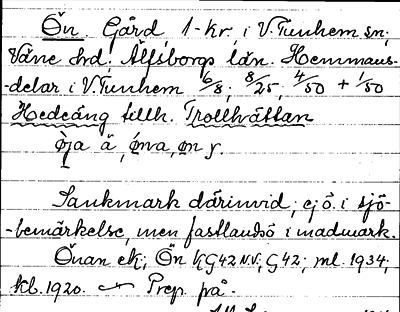 Ön. Gård 1-kr. i V. Tunhem sn;
Väne hrd. Älfsborgs län. Hemmans-
-delar i V. Tunhem 6/8; 8/25; 4/50 + 1/50
Hedeäng tillh. Trollhättan
øja ä, øna, øn f.
Sankmark därinvid; ej ö. i sjö-
-bemärkelse, men fastlandsö i madmark.
Önan ek; Ön KG42 N.V; G42; ml. 1934;
kl. 1920. Prep på.